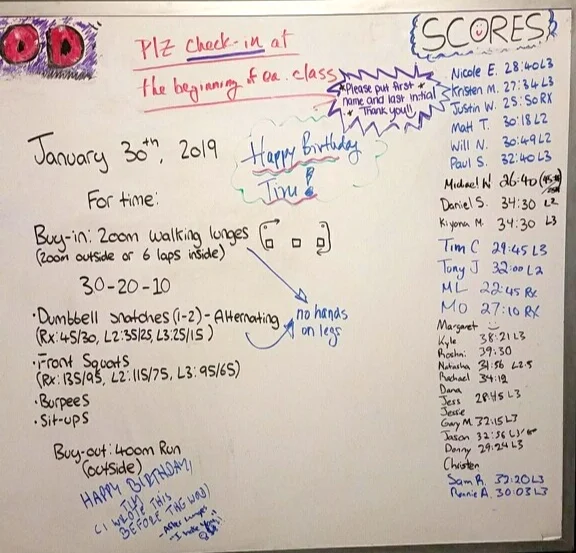 OD
Plz check-in at
the beginning of ea. class
*Please put first *
name and last initial
* Thank you!!
January 30th, 2019
Happy Birthday
Tinu!
For time:
Buy-in: 200m walking lunges
(200m outside or 6 laps inside)
30-20-10
no hands
on legs
• Dumbbell snatches (1-2) - Alternating
(Rx: 45/30, L2: 35/25, L3: 25/15)
• Front Squats
(Rx: 135/95, L2: 115/75, L3: 95/65)
• Burpees
• Sit-ups
Buy-out: 400m Run
(outside)
HAPPY BIRTHDAY
(I WROTE THIS
BEFORE THE WOD)
- After lunges
SCORES
Nicole E. 28:40 L3
Kristen M. 27:34 L3
Justin W. 25:50 RX
Matt T. 30:18 L2
Will N. 30:49 L2
Paul S. 32:40 L3
Michael N 26:40
Daniel S. 34:30 L2
Kiyona M. 34:30 L3
Tim C 29:45 L3
Tony J 32:00 L2
ML 22:45 Rx
MO 27:10 RX
Margaret
Kyle 38:21 L3
Roshni 39:30
Natasha 34:56 L2.5
Rachael 34:12
Dana
Jess 28:45 L3
Jessie
Gary M. 32:15 L3
Jason 32:56 L3
Donny 29:24 L3
Christen
Sam R. 32:20 L3
Ronnie A. 30:03 L3